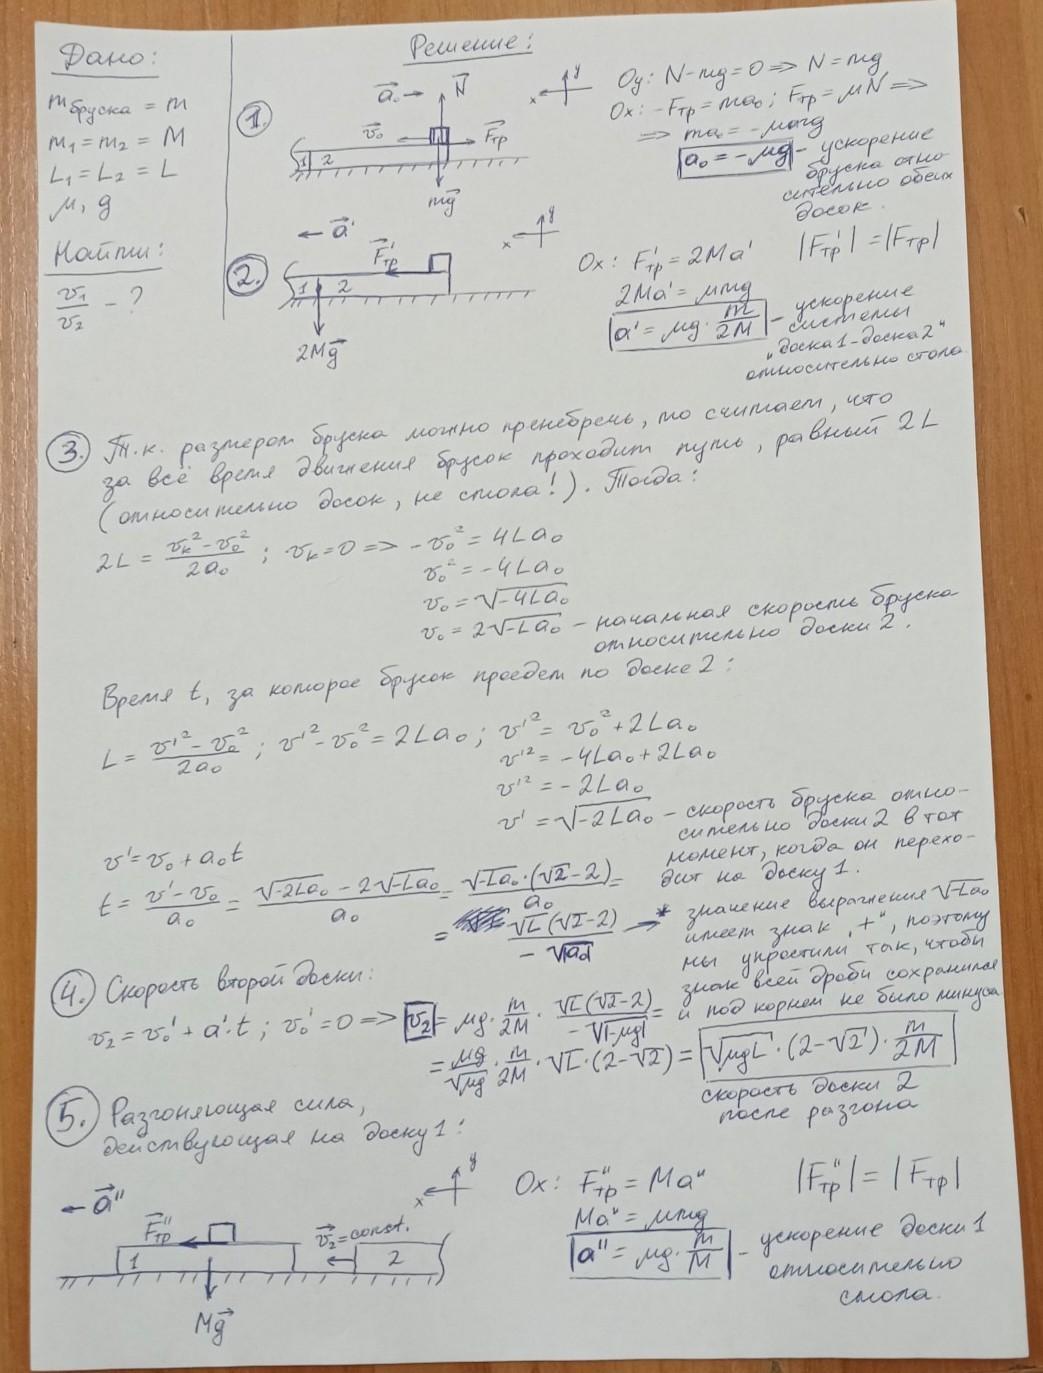 Дано:
m бруска = m
m₁ = m₂ = M
L₁ = L₂ = L
μ, g
Найти:
v₁/v₂ - ?
Решение:
1.
a₀ →
N
y
x
v₀
Fтр
1 2
mg
Oy: N - mg = 0 => N = mg
Ox: -Fтр = ma₀; Fтр = μN =>
=> ma₀ = -μmg
a₀ = -μg - ускорение
бруска отно-
сительно обеих
досок.
2.
← a'
y
x
F'тр
1 2
2Mg
Ox: F'тр = 2Ma' |F'тр| = |Fтр|
2Ma' = μmg
a' = μg · m/2M - ускорение
системы
„доска1-доска2"
относительно стола
3. Т.к. размером бруска можно пренебречь, то считаем, что
за всё время движения брусок проходит путь, равный 2L
(относительно досок, не стола!). Тогда:
2L = (vк² - v₀²)/2a₀ ; vк = 0 => -v₀² = 4La₀
v₀² = -4La₀
v₀ = √(-4La₀)
v₀ = 2√(-La₀) - начальная скорость бруска
относительно доски 2.
Время t, за которое брусок проедет по доске 2:
L = (v'² - v₀²)/2a₀ ; v'² - v₀² = 2La₀ ; v'² = v₀² + 2La₀
v'² = -4La₀ + 2La₀
v'² = -2La₀
v' = √(-2La₀) - скорость бруска отно-
сительно доски 2 в тот
момент, когда он перехо-
дит на доску 1.
v' = v₀ + a₀t
t = (v' - v₀)/a₀ = (√(-2La₀) - 2√(-La₀))/a₀ = √(-La₀)·(√2 - 2)/a₀ =
= √L(√2 - 2)/-√|a₀| → * значение выражения √(-La₀)
имеет знак „+", поэтому
мы упростили так, чтобы
знак всей дроби сохранился
и под корнем не было минуса
4. Скорость второй доски:
v₂ = v₀' + a'·t ; v₀' = 0 => v₂ = μg · m/2M · √L(√2 - 2)/-√|-μg| =
= μg/√μg · m/2M · √L · (2 - √2) = √μgL · (2 - √2) · m/2M
скорость доски 2
после разгона
5. Разгоняющая сила,
действующая на доску 1:
← a"
y
x
F"тр
v₂ = const.
1
2
Mg
Ox: F"тр = Ma" |F"тр| = |Fтр|
Ma" = μmg
a" = μg · m/M - ускорение доски 1
относительно
стола.